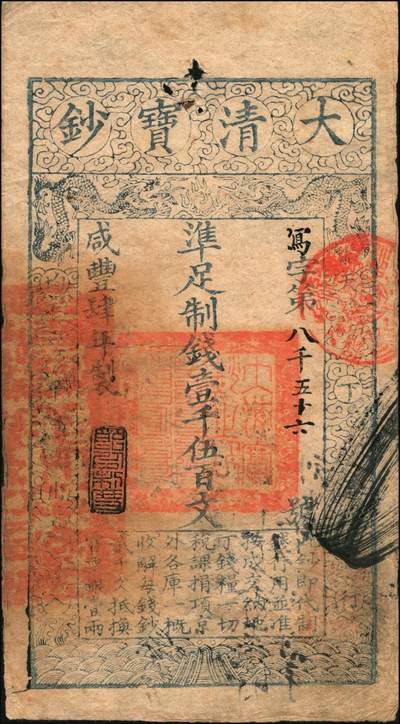 大清寶鈔
寫字第八千五十六號
準足制錢壹千伍百文
咸豐肆年製
鈔即代制
行用並准
按成交納地
丁錢糧一切
稅課捐項京
外各庫一概
收解每錢鈔
貳千文抵換
官票銀壹兩